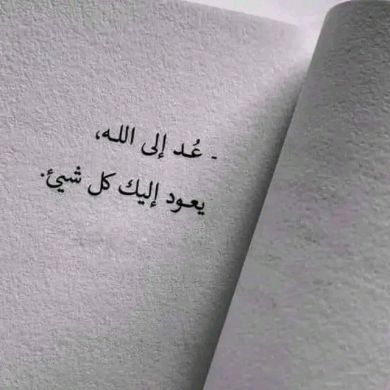 - عُد إلى الله،
يعود إليك كل شيئ.